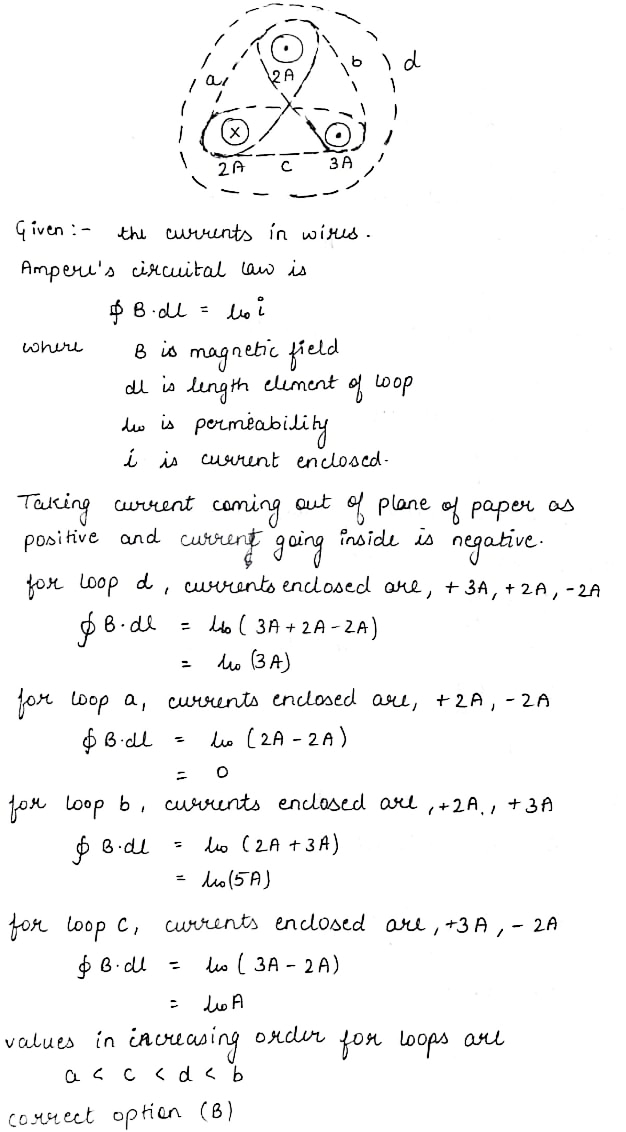 a
b
d
2A
2A
c
3A
Given :- the currents in wires.
Ampere's circuital law is
∮ B·dl = μ₀ i
where B is magnetic field
dl is length element of loop
μ₀ is permeability
i is current enclosed.
Taking current coming out of plane of paper as
positive and current going inside is negative.
for loop d, currents enclosed are, +3A, +2A, -2A
∮ B·dl = μ₀ ( 3A + 2A - 2A)
= μ₀ (3A)
for loop a, currents enclosed are, +2A, -2A
∮ B·dl = μ₀ (2A - 2A)
= 0
for loop b, currents enclosed are, +2A, +3A
∮ B·dl = μ₀ (2A + 3A)
= μ₀(5A)
for loop c, currents enclosed are, +3A, - 2A
∮ B·dl = μ₀ ( 3A - 2A)
= μ₀A
values in increasing order for loops are
a < c < d < b
correct option (B)